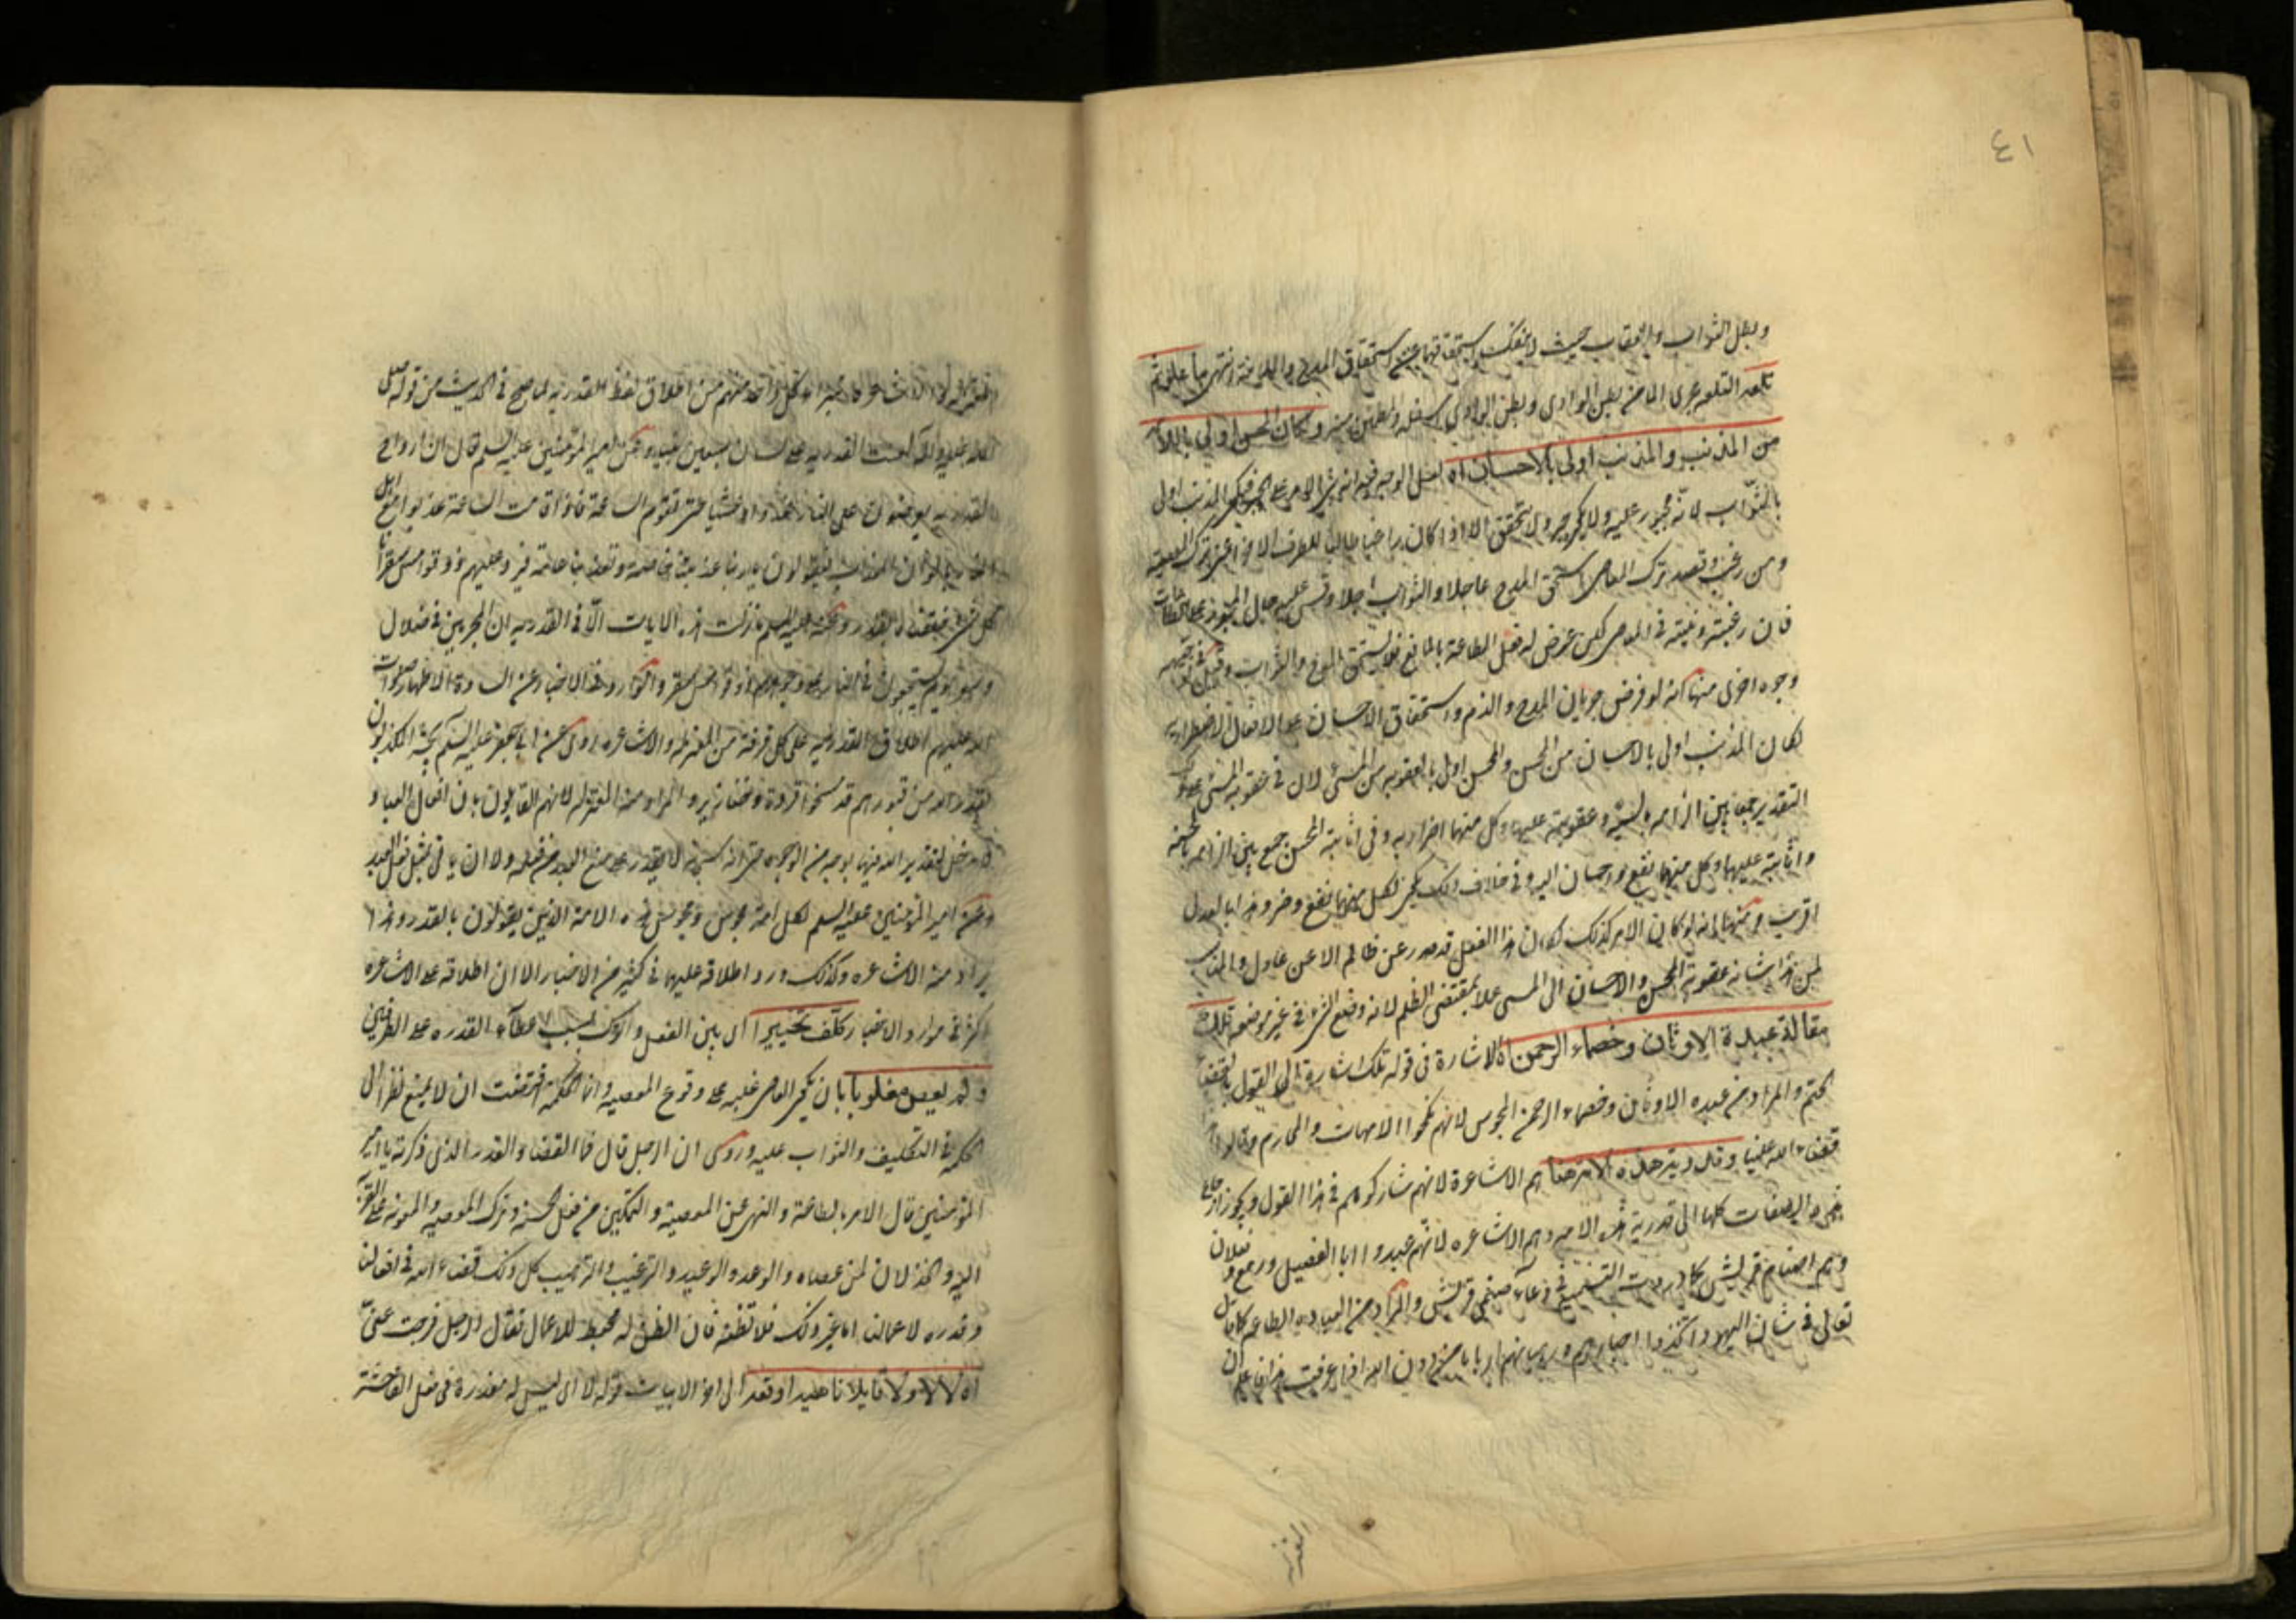 ٤١
وبطل الثواب والعقاب حيث لا ينفك استحقاقهما عن استحقاق المدح والملامة انتهى ما علوتم
تلعه التلعه مجرى الماء من بطن الوادي وبطن الوادي اسفله والمطمئن منه وكان المحسن اولى باللائمة
من المذنب والمذنب اولى بالاحسان اه لعل الوجه فيه انه الامر على المذنب اولى
بالثواب لانه مجبور عليه ولا يتحقق الا اذا كان راضيا طالبا للطرف الاخر اعني ترك المعصية
ومن رغب وقصد ترك المعاصي استحق المدح عاجلا والثواب اجلا وقس عليه حال المجبور على الطاعات
فان رغبته ونيته في المعاصي لكن عرض له فعل الطاعة بالمانع فلا يستحق المدح والثواب وقيل في توجيهه
وجوه اخرى منها انه لو فرض جريان المدح والذم واستحقاق الاحسان على الافعال الاضطرارية
لكان المذنب اولى بالاحسان من المحسن والمحسن اولى بالعقوبة من المسئ لان في عقوبة المسئ على
التقدير جمعا بين الزامه بالسيئة وعقوبته عليها وكل منهما اضرار به وفي اثابة المحسن جمع بين الزامه بالحسنة
واثابته عليها وكل منهما نفع واحسان اليه وفي خلاف ذلك يكون لكل منهما نفع وضر وهذا بالعدل
اقرب ومنها انه لو كان الامر كذلك لكان هذا الفعل قد صدر عن ظالم لا عن عادل والمناسب
لمن هذا شانه عقوبة المحسن والاحسان الى المسئ عملا بمقتضى الظلم لانه وضع الشئ في غير موضعه تلك
مقالة عبدة الاوثان وخصماء الرحمن اه الاشارة في قوله تلك اشارة الى القول بالقضاء
الحتم والمراد من عبده الاوثان وخصماء الرحمن المجوس لانهم نكحوا الامهات والمحارم وقالوا
قضاء الله علينا وقدرية هذه الامة هنا هم الاشاعرة لانهم شاركوهم في هذا القول ويجوز ارجاع
الصفات كلها الى قدرية هذه الامه وهم الاشاعره لانهم عبدوا ابا الفصيل ورمع ونعثلان
وهم اصنام قريش كما وردت التسمية في دعاء صنمي قريش والمراد من العباده الطاعه كما قال
تعالى في شان اليهود اتخذوا احبارهم ورهبانهم اربابا من دون الله اذا عرفت هذا فاعلم ان
المعتزله
والاشاعره كل واحد منهم من اطلاق لفظ القدريه لما صح في الحديث من قوله صلى
الله عليه واله لعنت القدريه على لسان سبعين نبيا وعن امير المؤمنين عليه السلم قال ان ارواح
القدريه يعرضون على النار غدوا وعشيا حتى تقوم الساعة فاذا قامت الساعة عذبوا مع اهل
النار بالوان العذاب فيقولون يا ربنا عذبتنا خاصة وتعذبنا عامة فيرد عليهم ذوقوا مس سقر انا
كل شئ خلقناه بقدر وعنه عليه السلم ما نزلت هذه الايات الا في القدريه ان المجرمين في ضلال
وسعر يوم يسحبون في النار على وجوههم ذوقوا مس سقر واكثر ورود الاخبار عن السادة الاطهار صلوات
الله عليهم اطلاق القدريه على كل فرقة من المعتزله والاشاعره روى عن ابي جعفر عليه السلم يحشر المكذبون
بقدر الله من قبورهم قد مسخوا قردة وخنازير والمراد منه المعتزله لانهم القايلون بان افعال العباد
لا مدخل لتقدير الله فيها بوجه من الوجوه حتى انه سبحانه لا يقدر على منع العبد من فعله ولا ان ياتي بمثل فعل العبد
وعن امير المؤمنين عليه السلم لكل امة مجوس ومجوس هذه الامة الذين يقولون بالقدر وهذا
يراد منه الاشاعره وكذلك ورد اطلاقه عليها في كثير من الاخبار الا ان اطلاقه على الاشاعره
اكثر في موارد الاخبار وكلف تخييرا اى بين الفعل والترك بسبب اعطآء القدره على الطرفين
ولم يعص مغلوبا بان يكون العاصي غلبه على وقوع المعصيه وانما الحكمة اقتضت ان لا يمنع نظرا الى
الحكمة في التكليف والثواب عليه وروى ان الرجل قال فما القضاء والقدر الذى ذكرته يا امير
المؤمنين قال الامر بالطاعة والنهى عن المعصية والتمكين من فعل الحسنه وترك المعصيه والمعونه على القربة
اليه والخذلان لمن عصاه والوعد والوعيد والترغيب والترهيب كل ذلك قضاء الله في افعالنا
وقدره لاعمالنا اما غير ذلك فلا تظنه فان الظن له محبط للاعمال فقال الرجل فرجت عنى
اه لا لا ولا قايلا ناهيه اوقعه الى اخر الابيات قوله لا اى ليس له معذرة في فعل الفاحشة